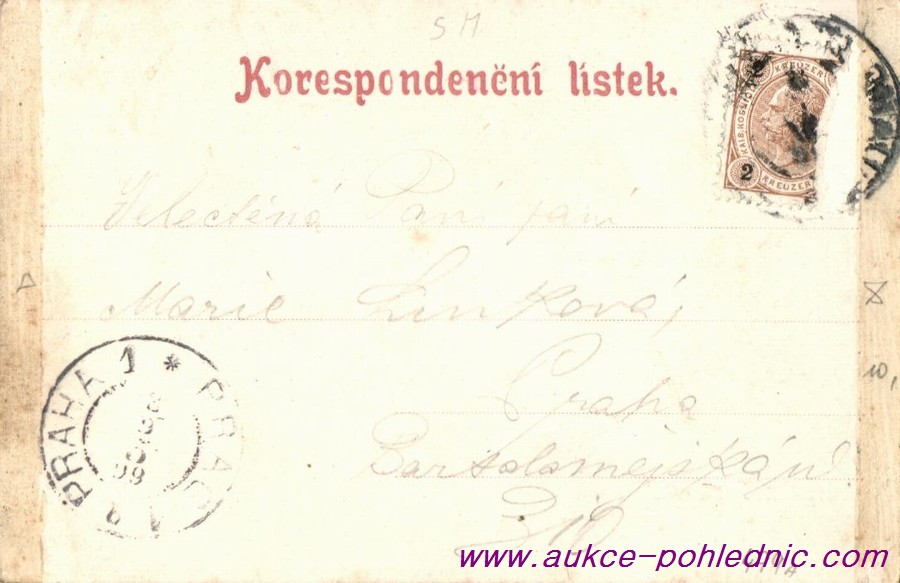 SM
Korespondenční lístek.
KAIS. KÖNIGL.
KREUZER
2
KREUZER
Velectěná Paní paní
Marie Linková,
Praha
Bartolomejská ul
310
PRAHA 1 * PRAG 1
www.aukce-pohlednic.com